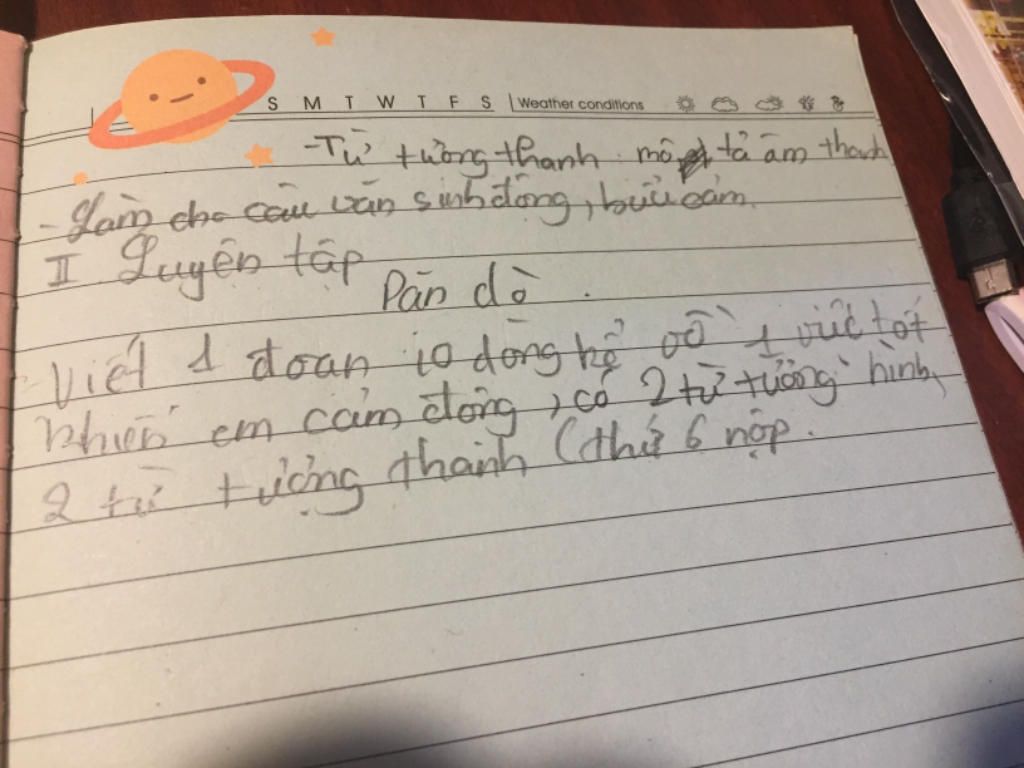 S M T W T F S Weather conditions
-Từ tượng thanh mô tả âm thanh
- Làm cho câu văn sinh động, biểu cảm.
II Luyện tập
Dăn dò.
Viết 1 đoan 10 dòng kể về 1 việc tốt
khiến em cảm động, có 2 từ tượng hình,
2 từ tượng thanh (thứ 6 nộp.